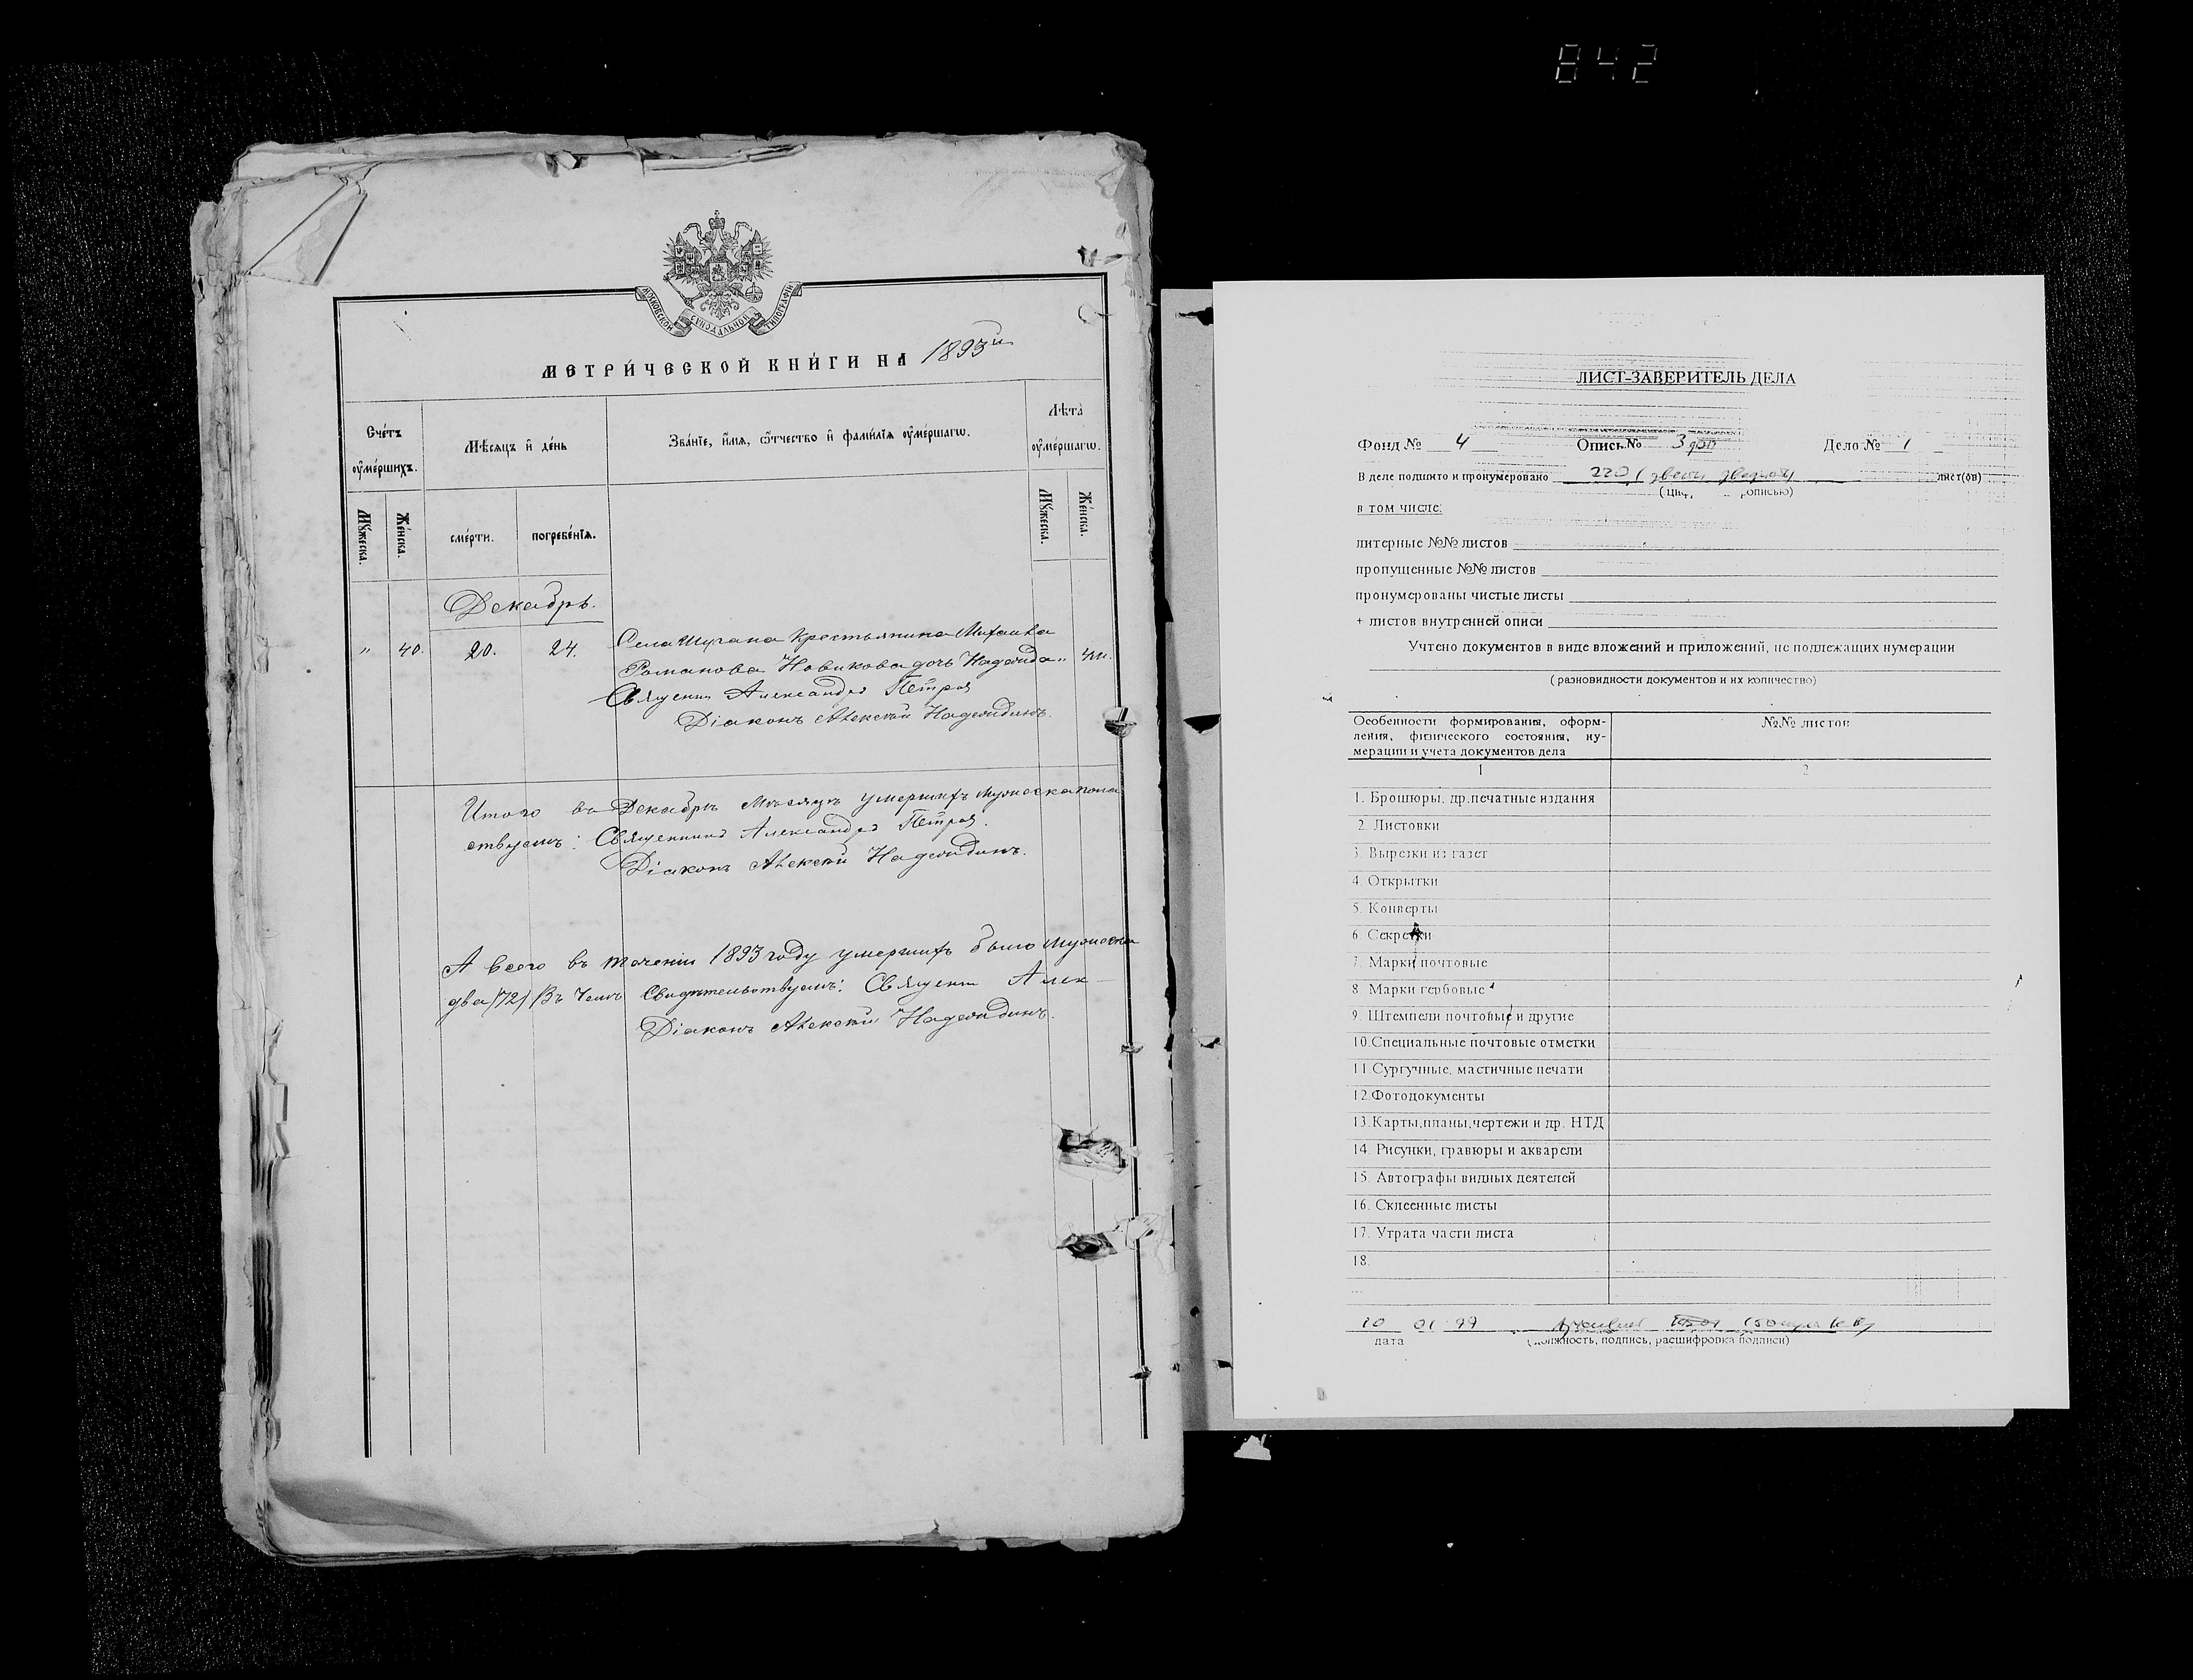 842
МОСКОВСКОЙ СѴНОДАЛЬНОЙ ТИПОГРАФІИ
МЕТРИ́ЧЕСКОЙ КНИ́ГИ НА 1893й
Сче́тъ оу҆ме́ршихъ.
Мѣ́сяцъ и҆ де́нь
Зва́нїе, и҆́мя, ѻ҆́тчество и҆ фами́лїя оу҆ме́ршагѡ.
Лѣта̀ оу҆ме́ршагѡ.
Мꙋ́жеска.
Же́нска.
сме́рти.
погребе́нїя.
Мꙋ́жеска.
Же́нска.
Декабрь.
" 40. 20. 24. Села Шугана Крестьянина Михаила
Романова Новикова дочь Надежда "
Священ Александръ Петров
Діаконъ Алексѣй Надеждинъ.
Итого въ Декабрѣ Мѣсяцѣ умершихъ мужеска пола
ствуемъ: Священникъ Александръ Петров.
Діаконъ Алексѣй Надеждинъ.
А всего въ теченіи 1893 году умершихъ было мужеска
два /72/ Въ чемъ Свидѣтельствуемъ: Священ Алек-
Діаконъ Алексѣй Надеждинъ.
ЛИСТ-ЗАВЕРИТЕЛЬ ДЕЛА
Фонд № 4 Опись № 3 доп Дело № 1
В деле подшито и пронумеровано 220 (двести двадцать) лист(ов)
в том числе:
литерные №№ листов
пропущенные №№ листов
пронумерованы чистые листы
+ листов внутренней описи
Учтено документов в виде вложений и приложений, не подлежащих нумерации
(разновидности документов и их количество)
Особенности формирования, оформ-
ления, физического состояния, ну-
мерации и учета документов дела
№№ листов
1 2
1. Брошюры, др.печатные издания
2. Листовки
3. Вырезки из газет
4. Открытки
5. Конверты
6. Секретки
7. Марки почтовые
8 Марки гербовые
9. Штемпели почтовые и другие
10.Специальные почтовые отметки
11.Сургучные, мастичные печати
12.Фотодокументы
13.Карты,планы,чертежи и др. НТД
14. Рисунки, гравюры и акварели
15. Автографы видных деятелей
16. Склеенные листы
17. Утрата части листа
18.
...
10 01 99
дата (должность, подпись, расшифровка подписи)